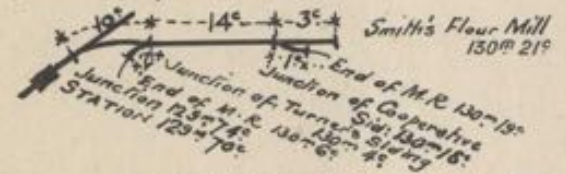 10ᶜ
14ᶜ
3ᶜ
Smith's Flour Mill
130ᵐ 21ᶜ
2ᶜ
1ᶜ
End of M.R. 130ᵐ 19ᶜ
Junction of Cooperative
Sid: 130ᵐ 18ᶜ
Junction of Turner's Siding
130ᵐ 4ᶜ
End of M.R. 130ᵐ 6ᶜ
Junction 129ᵐ 74ᶜ
STATION 129ᵐ 70ᶜ